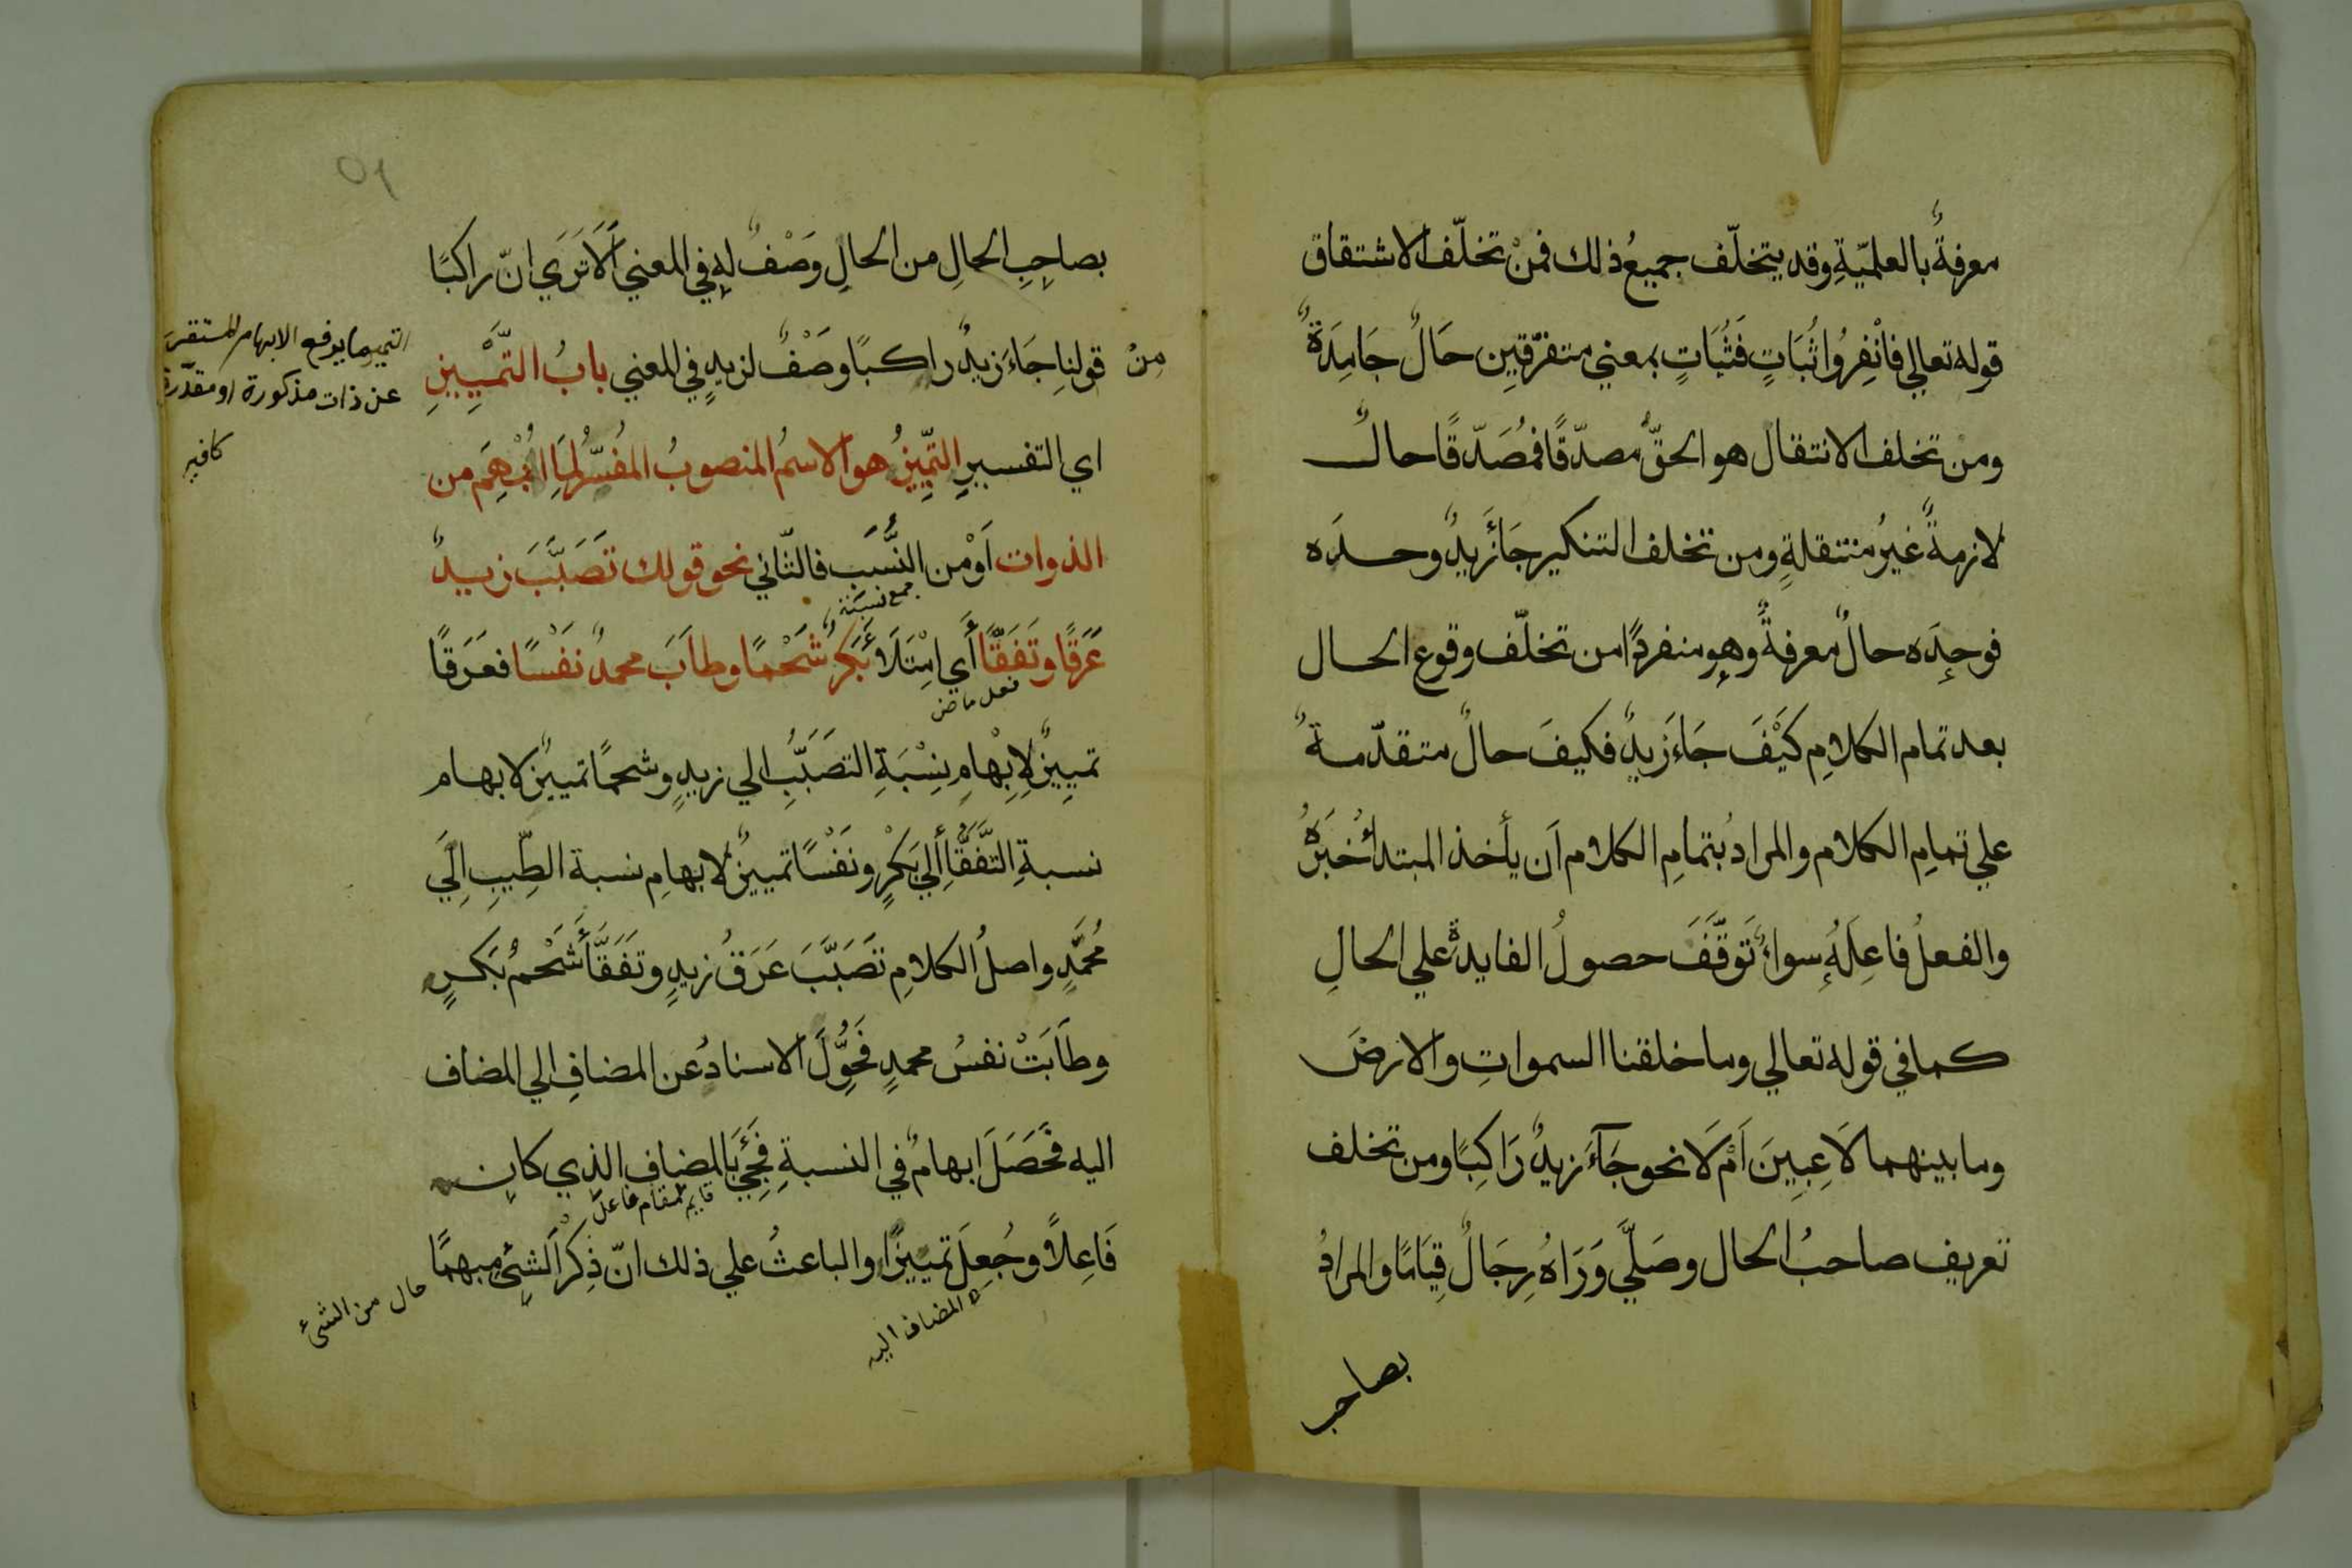 معرفةٌ بالعلميّةِ وقد يتخلّف جميعُ ذلك فمنْ تخلّف الاشتقاق
قوله تعالي فانْفِرُوا ثُبَاتٍ فَثُبَاتٍ بمعني متفرّقين حَالٌ جَامِدَةٌ
ومن تخلف الانتقال هو الحقُّ مصدّقًا فمُصَدّقًا حالٌ
لازمةٌ غيرُ منتقلةٍ ومن تخلف التنكير جَاءَ زيدٌ وحدَه
فوحدَه حالٌ معرفةٌ وهو منفردًا من تخلّف وقوع الحال
بعد تمام الكلامِ كَيْفَ جَاءَ زَيدٌ فكيفَ حالٌ متقدّمةٌ
علي تمامِ الكلام والمرادُ بتمامِ الكلام اَن يأخذ المبتدأُ خبَرَهُ
والفعلُ فاعِلَهُ سواءٌ تَوقّفَ حصولُ الفايدةِ علي الحالِ
كما في قوله تعالي وما خلقنا السمواتِ والارضَ
وما بينهما لاَعِبِينَ اَمْ لاَ نحو جَآءَ زيدٌ رَاكِبًا ومن تخلف
تعريف صاحبُ الحال وصَلَّي وَرَاهُ رِجَالٌ قِيَامًا والمرادُ
بصاحب
٥١
بصاحِبِ الحالِ من الحالِ وَصْفٌ له في المعني اَلاَ تَرَي انّ راكبًا
مِنْ قولنا جَاءَ زيدٌ راكبًا وصْفٌ لزيدٍ في المعني بابُ التَّمْيِيزِ
التمييز ما يرفع الابهام المستقر
عن ذات مذكورة او مقدّرة
كافيه
اي التفسيرِ التمييزُ هو الاسمُ المنصوبُ المُفسِّرُ لِمَا انْبَهَمَ من
الذوات اَوْ من النِّسَب فالثّاني نحو قولك تَصَبَّبَ زيدٌ
جمع نسبة
عَرَقًا وتَفَقَّأَ أَي اِمْتَلَأَ بَكرٌ شَحْمًا وطابَ محمدٌ نَفْسًا فعَرَقًا
فعل ماض
تمييزٌ لإِبْهامِ نِسْبَةِ التصَبُّبِ الي زيدٍ وشحمًا تمييزٌ لابهام
نسبةِ التَّفَقُّأِ إلي بَكْرٍ ونَفْسًا تمييزٌ لابهامِ نسبة الطِّيبِ إلَي
مُحمَّدٍ واصلُ الكلامِ تَصَبَّبَ عَرَقُ زيدٍ وتَفَقَّأَ شَحْمُ بَكرٍ
وطابَتْ نفسُ محمدٍ فَحُوِّلَ الاسنادُ عن المضافِ الي المضاف
اليه فحَصَلَ ابهامٌ في النسبةِ فَجِئَ بالمضافِ الذي كان
قايم مقام فاعل
فَاعِلاً وجُعِلَ تمييزًا والباعثُ علي ذلك انّ ذِكْرَ الشيءِ مبهمًا
المضاف اليه
حال من الشئ